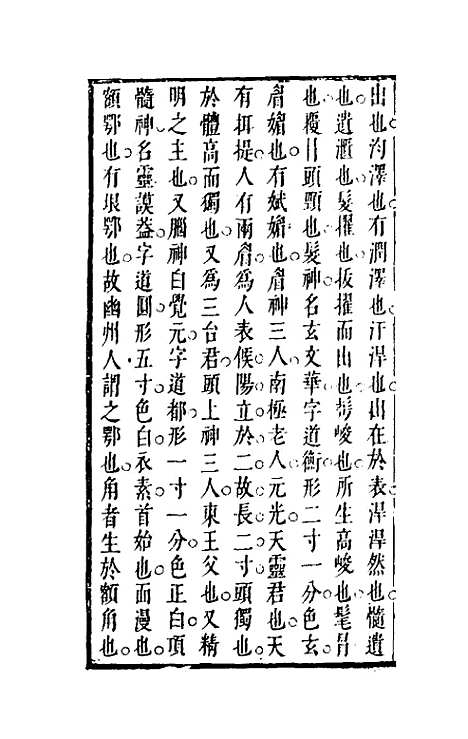 出也汋澤也有潤澤也汗㴋也出在於表㴋㴋然也髓遺
也遺𣿅也髮擢也拔擢而出也鬢峻也所生高峻也髦冒
也覆冒頭頸也髮神名玄文華字道衡形二寸一分色玄
眉媚也有娬媚也眉神三人南極老人元光天靈君也天
有珥提人有兩眉為人表候陽立於二故長二寸頭獨也
於體高而獨也又為三台君頭上神三人東王父也又精
明之主也又腦神白覺元字道都形一寸一分色正白項
髓神名靈謨蓋字道圓形五寸色白衣素首始也而漫也
額鄂也有垠鄂也故幽州人謂之鄂也角者生於額角也